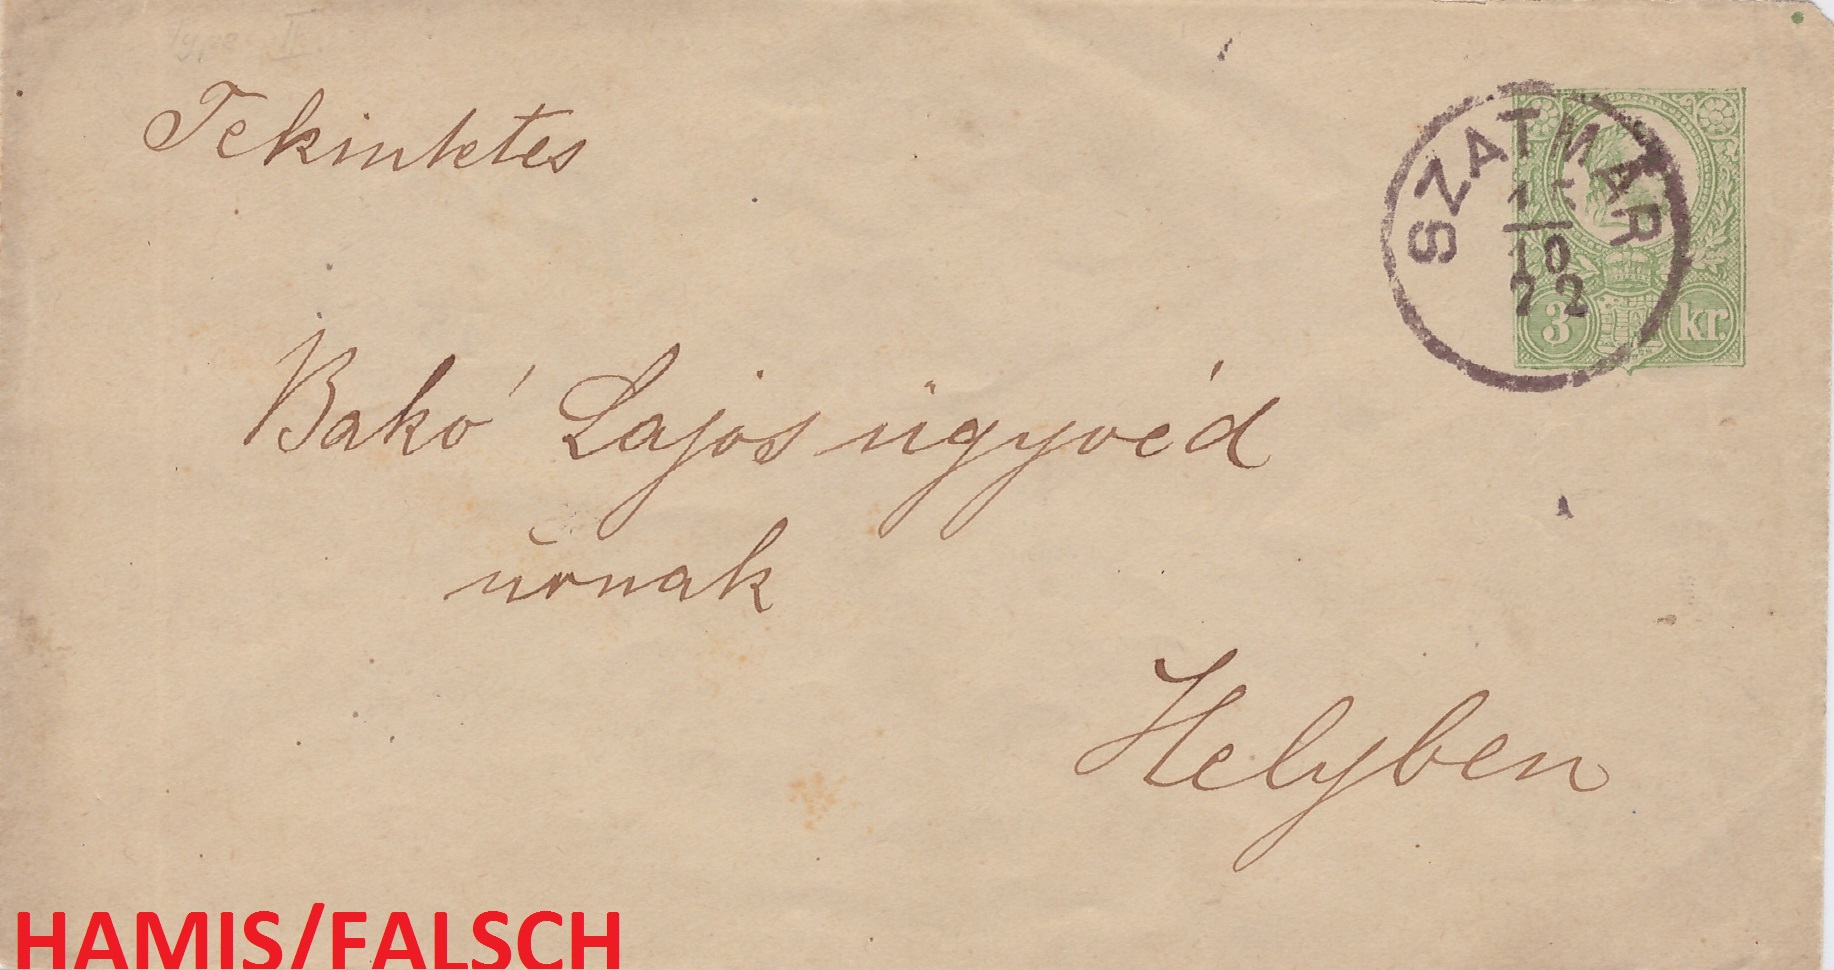 Type II.
Tekintetes
SZATMÁR
15
10
72
3 kr.
Bakó Lajos ügyvéd
úrnak
Helyben
HAMIS/FALSCH